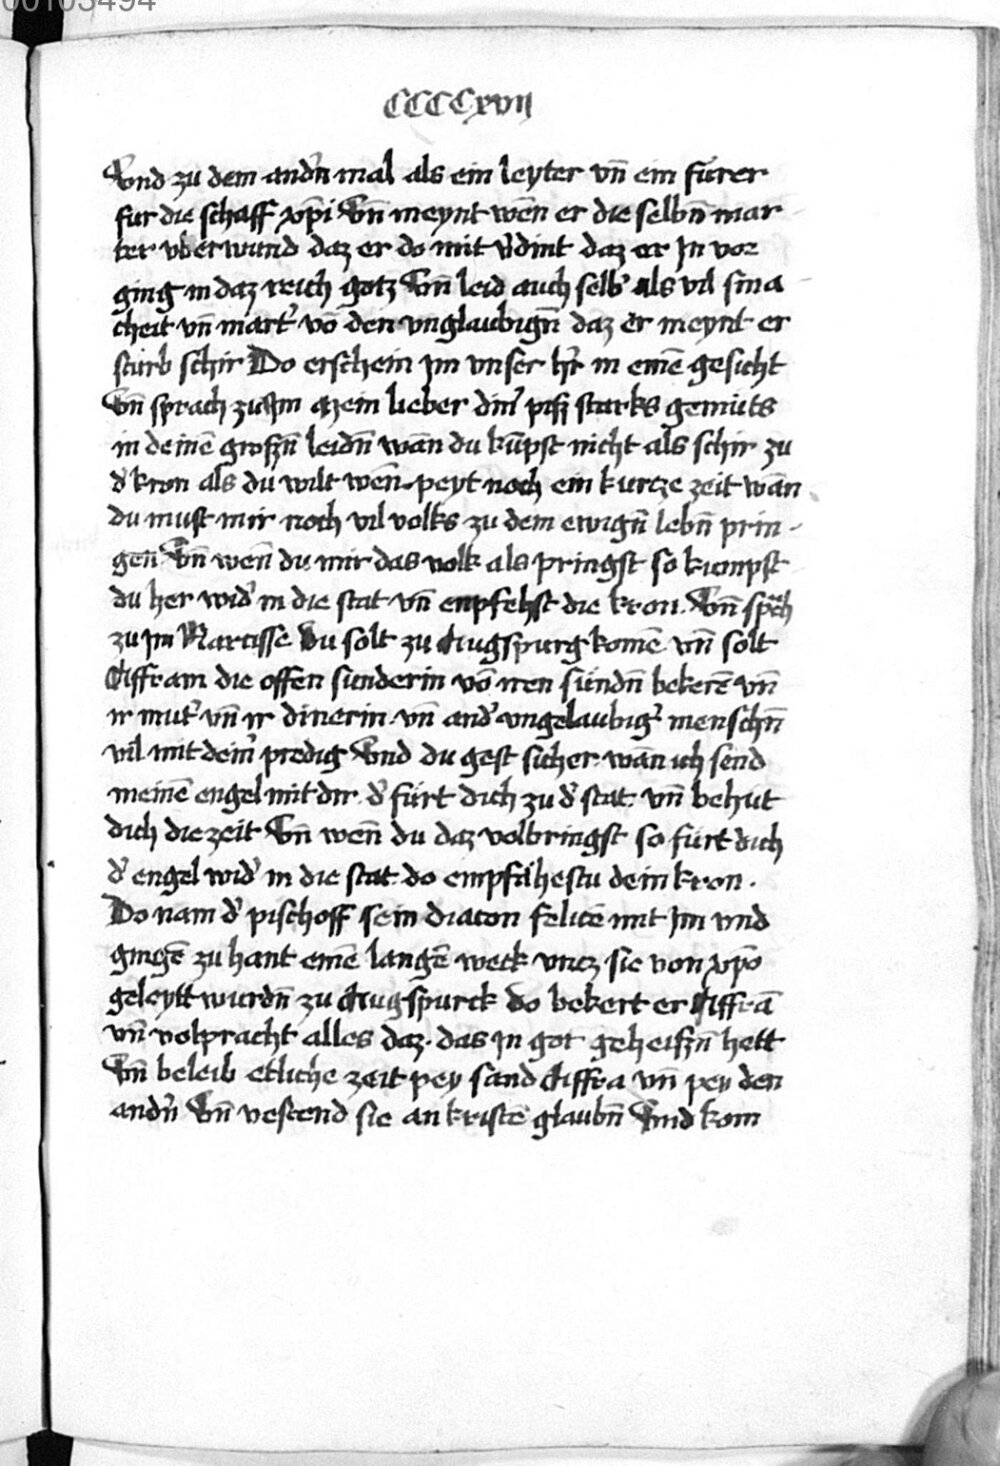 00103494
CCCCxvij
Vnd zu dem andn̄ mal als ein leyter vn̄ ein fürer
fur die schaff xp̄i Vn̄ meynt wen̄ er die selbn̄ mar
ter vberwund daz er do mit v'dint daz er jn vor
ging in daz reich gotz Vn̄ leid auch selb' als vil sma
cheit vn̄ mart' vō den vnglaubign̄ daz er meynt er
stürb schir Do erschein jm vnser h'r in einē gesicht
Vn̄ sprach zu jm Mein lieber din' piß starks gemüts
in deinē großn̄ leidn̄ wan̄ du kūpst nicht als schir zu
d' kron als du wilt wen̄ peyt noch ein kurcze zeit wan̄
du must mir noch vil volks zu dem ewign̄ lebn̄ prin-
gen Vn̄ wen̄ du mir das volk als pringst so kumpst
du her wid' in die stat vn̄ enpfehst die kron. Vn̄ sp̄ch
zu jm Narcisse Du solt zu Augspurg komē vn̄ solt
Affram die offen sunderin vō iren sündn̄ bekerē vn̄
ir mut' vn̄ ir dinerin vn̄ and' vngelaubig' menschn̄
vil mit dein' predig Vnd du gest sicher wan̄ ich send
meinē engel mit dir d' fürt dich zu d' stat vn̄ behüt
dich die zeit Vn̄ wen̄ du daz volbringst so fürt dich
d' engel wid' in die stat do empfähestu dein kron.
Do nam d' pischoff sein diacon felicē mit jm vnd
gingē zu hant einē langē weck vncz sie von xp̄o
geleytt wurdn̄ zu Augspurck do bekert er Affrā
vn̄ volpracht alles daz. das jn got geheißn̄ hett
Vn̄ beleib etliche zeit pey sand Affra vn̄ pey den
andn̄ Vn̄ vestend sie an kristē glaubn̄ Vnd kom